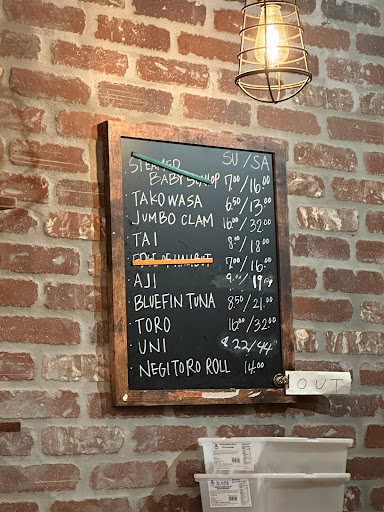 SU / SA
STEAMED
BABY SCALLOP 7.00 / 16.00
TAKOWASA 6.50 / 13.00
JUMBO CLAM 16.00 / 32.00
TAI 8.00 / 18.00
EDGE OF HALIBUT 7.00 / 16.00
AJI 9.00 / 19.00
BLUEFIN TUNA 8.50 / 21.00
TORO 16.00 / 32.00
UNI $22/44
NEGITORO ROLL 14.00
OUT